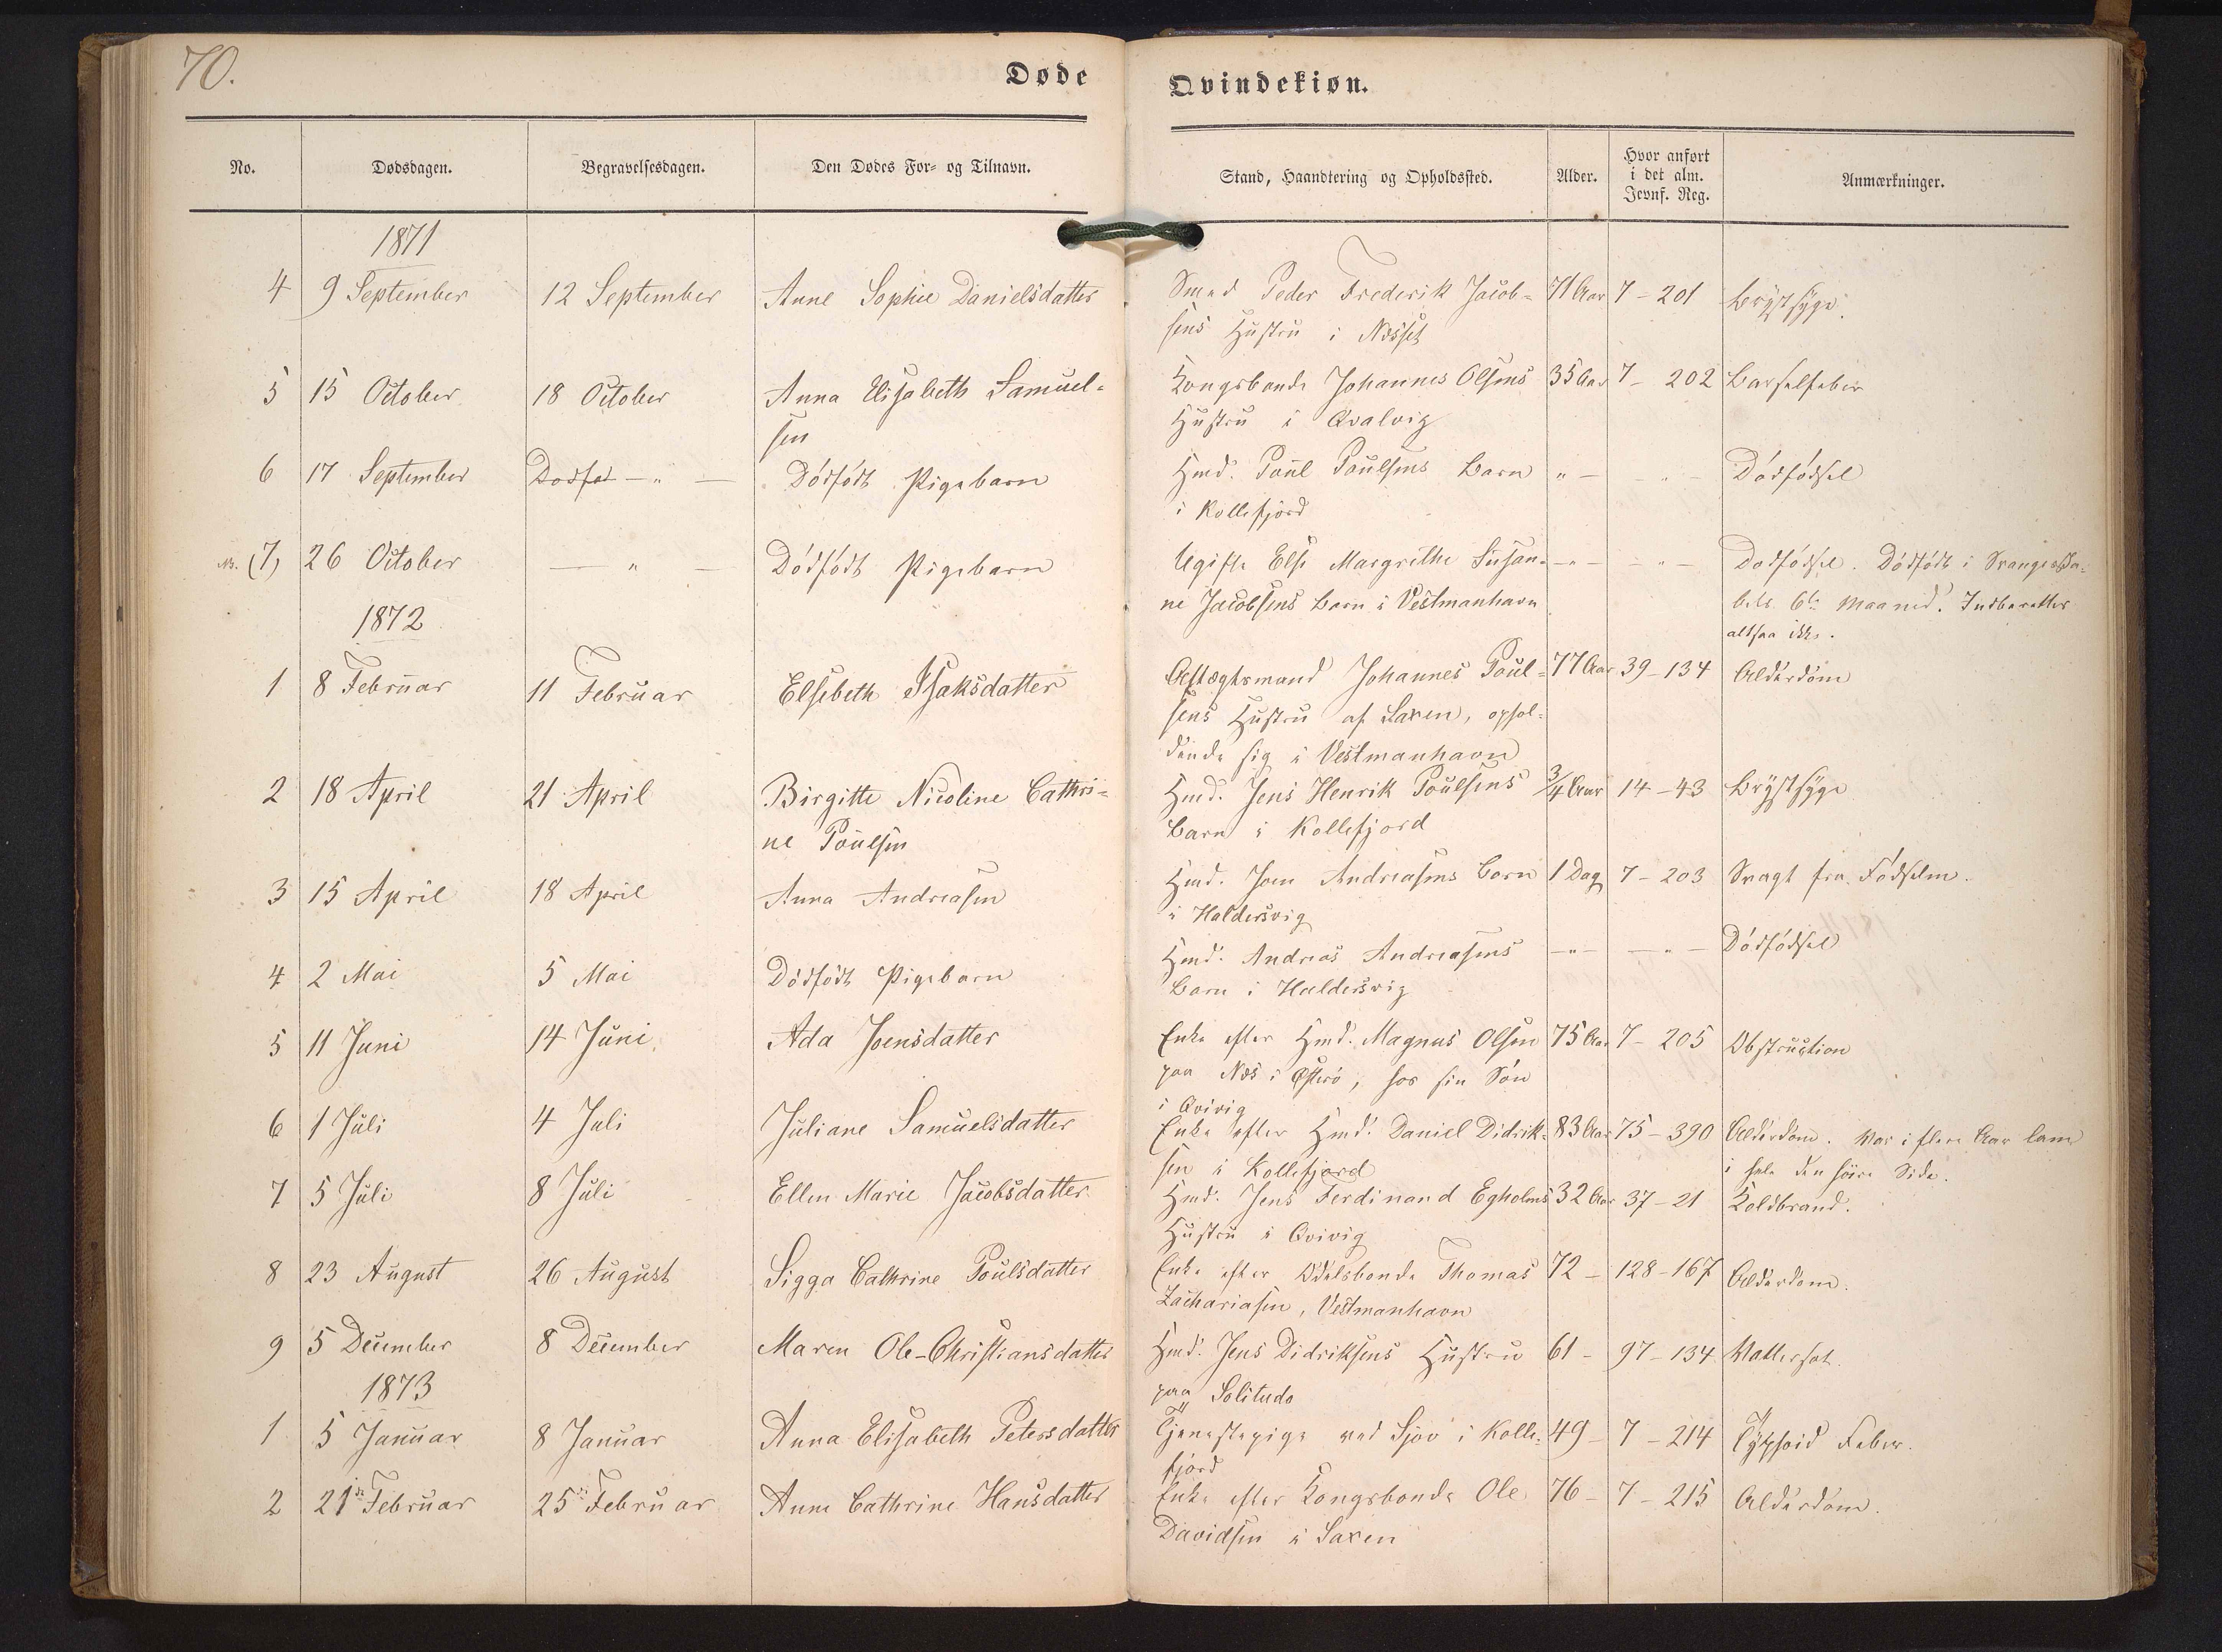 70.
Døde
Qvindekiøn.
No. Dødsdagen. Begravelsesdagen. Den Dødes For- og Tilnavn. Stand, Haandtering og Opholdssted. Alder. Hvor anført i det alm. Jevnf. Reg. Anmærkninger.
1871
4 9 September 12 September Anne Sophie Danielsdatter Smed Peder Frederik Jacob- 71 Aar 7-201 Brystsyge.
sens Hustru i Nesset
5 15 October 18 October Anna Elisabeth Samuel- Kongsbonde Johannes Olsens 35 Aar 7-202 Barselfeber
sen Hustru i Qvalvig
6 17 September Dødfød - " - Dødfødt Pigebarn Hmd. Poul Poulsens Barn " - - " - Dødfødsel
i Kollefjord
Nb. (7) 26 October - " - Dødfødt Pigebarn Ugifte Else Margrethe Susan- - " - - " - Dødfødsel. Dødfødt i Svangerska-
ne Jacobsens Barn i Vestmanhavn bets 6te Maaned. Indberettes
altsaa ikke.
1872
1 8 Februar 11 Februar Elsebeth Isaksdatter Aftægtsmand Johannes Poul- 77 Aar 39-134 Alderdom
sens Hustru af Saxen, ophol-
dende sig i Vestmanhavn
2 18 April 21 April Birgitte Nicoline Cathri- Hmd. Jens Henrik Poulsens 3/4 Aar 14-43 Brystsyge
ne Poulsen Barn i Kollefjord
3 15 April 18 April Anna Andreasen Hmd. Joen Andreasens Barn 1 Dag 7-203 Svagt fra Fødselen.
i Haldersvig
4 2 Mai 5 Mai Dødfødt Pigebarn Hmd. Andreas Andreasens - " - - " - Dødfødsel
Barn i Haldersvig
5 11 Juni 14 Juni Ada Joensdatter Enke efter Hmd. Magnus Olsen 75 Aar 7-205 Obstruction
paa Nes i Østerø, hos sin Søn
i Qvivig
6 1 Juli 4 Juli Juliane Samuelsdatter Enke efter Hmd. Daniel Didrik- 83 Aar 75-390 Alderdom. Var i flere Aar lam
sen i Kollefjord i hele den høire Side.
7 5 Juli 8 Juli Ellen Marie Jacobsdatter Hmd. Jens Ferdinand Egholms 32 Aar 37-21 Koldbrand.
Hustru i Qvivig
8 23 August 26 August Sigga Cathrine Poulsdatter Enke efter Odelsbonde Thomas 72 - 128-167 Alderdom.
Zachariasen, Vestmanhavn
9 5 December 8 December Maren Ole-Christiansdatter Hmd. Jens Didriksens Hustru 61 - 97-134 Vattersot.
paa Solitude
1873
1 5 Januar 8 Januar Anna Elisabeth Petersdatter Tjenestepige ved Sjov i Kolle- 49 - 7-214 Typhoid Feber.
fjord
2 21de Februar 25de Februar Anne Cathrine Hansdatter Enke efter Kongsbonde Ole 76 - 7-215 Alderdom.
Davidsen i Saxen